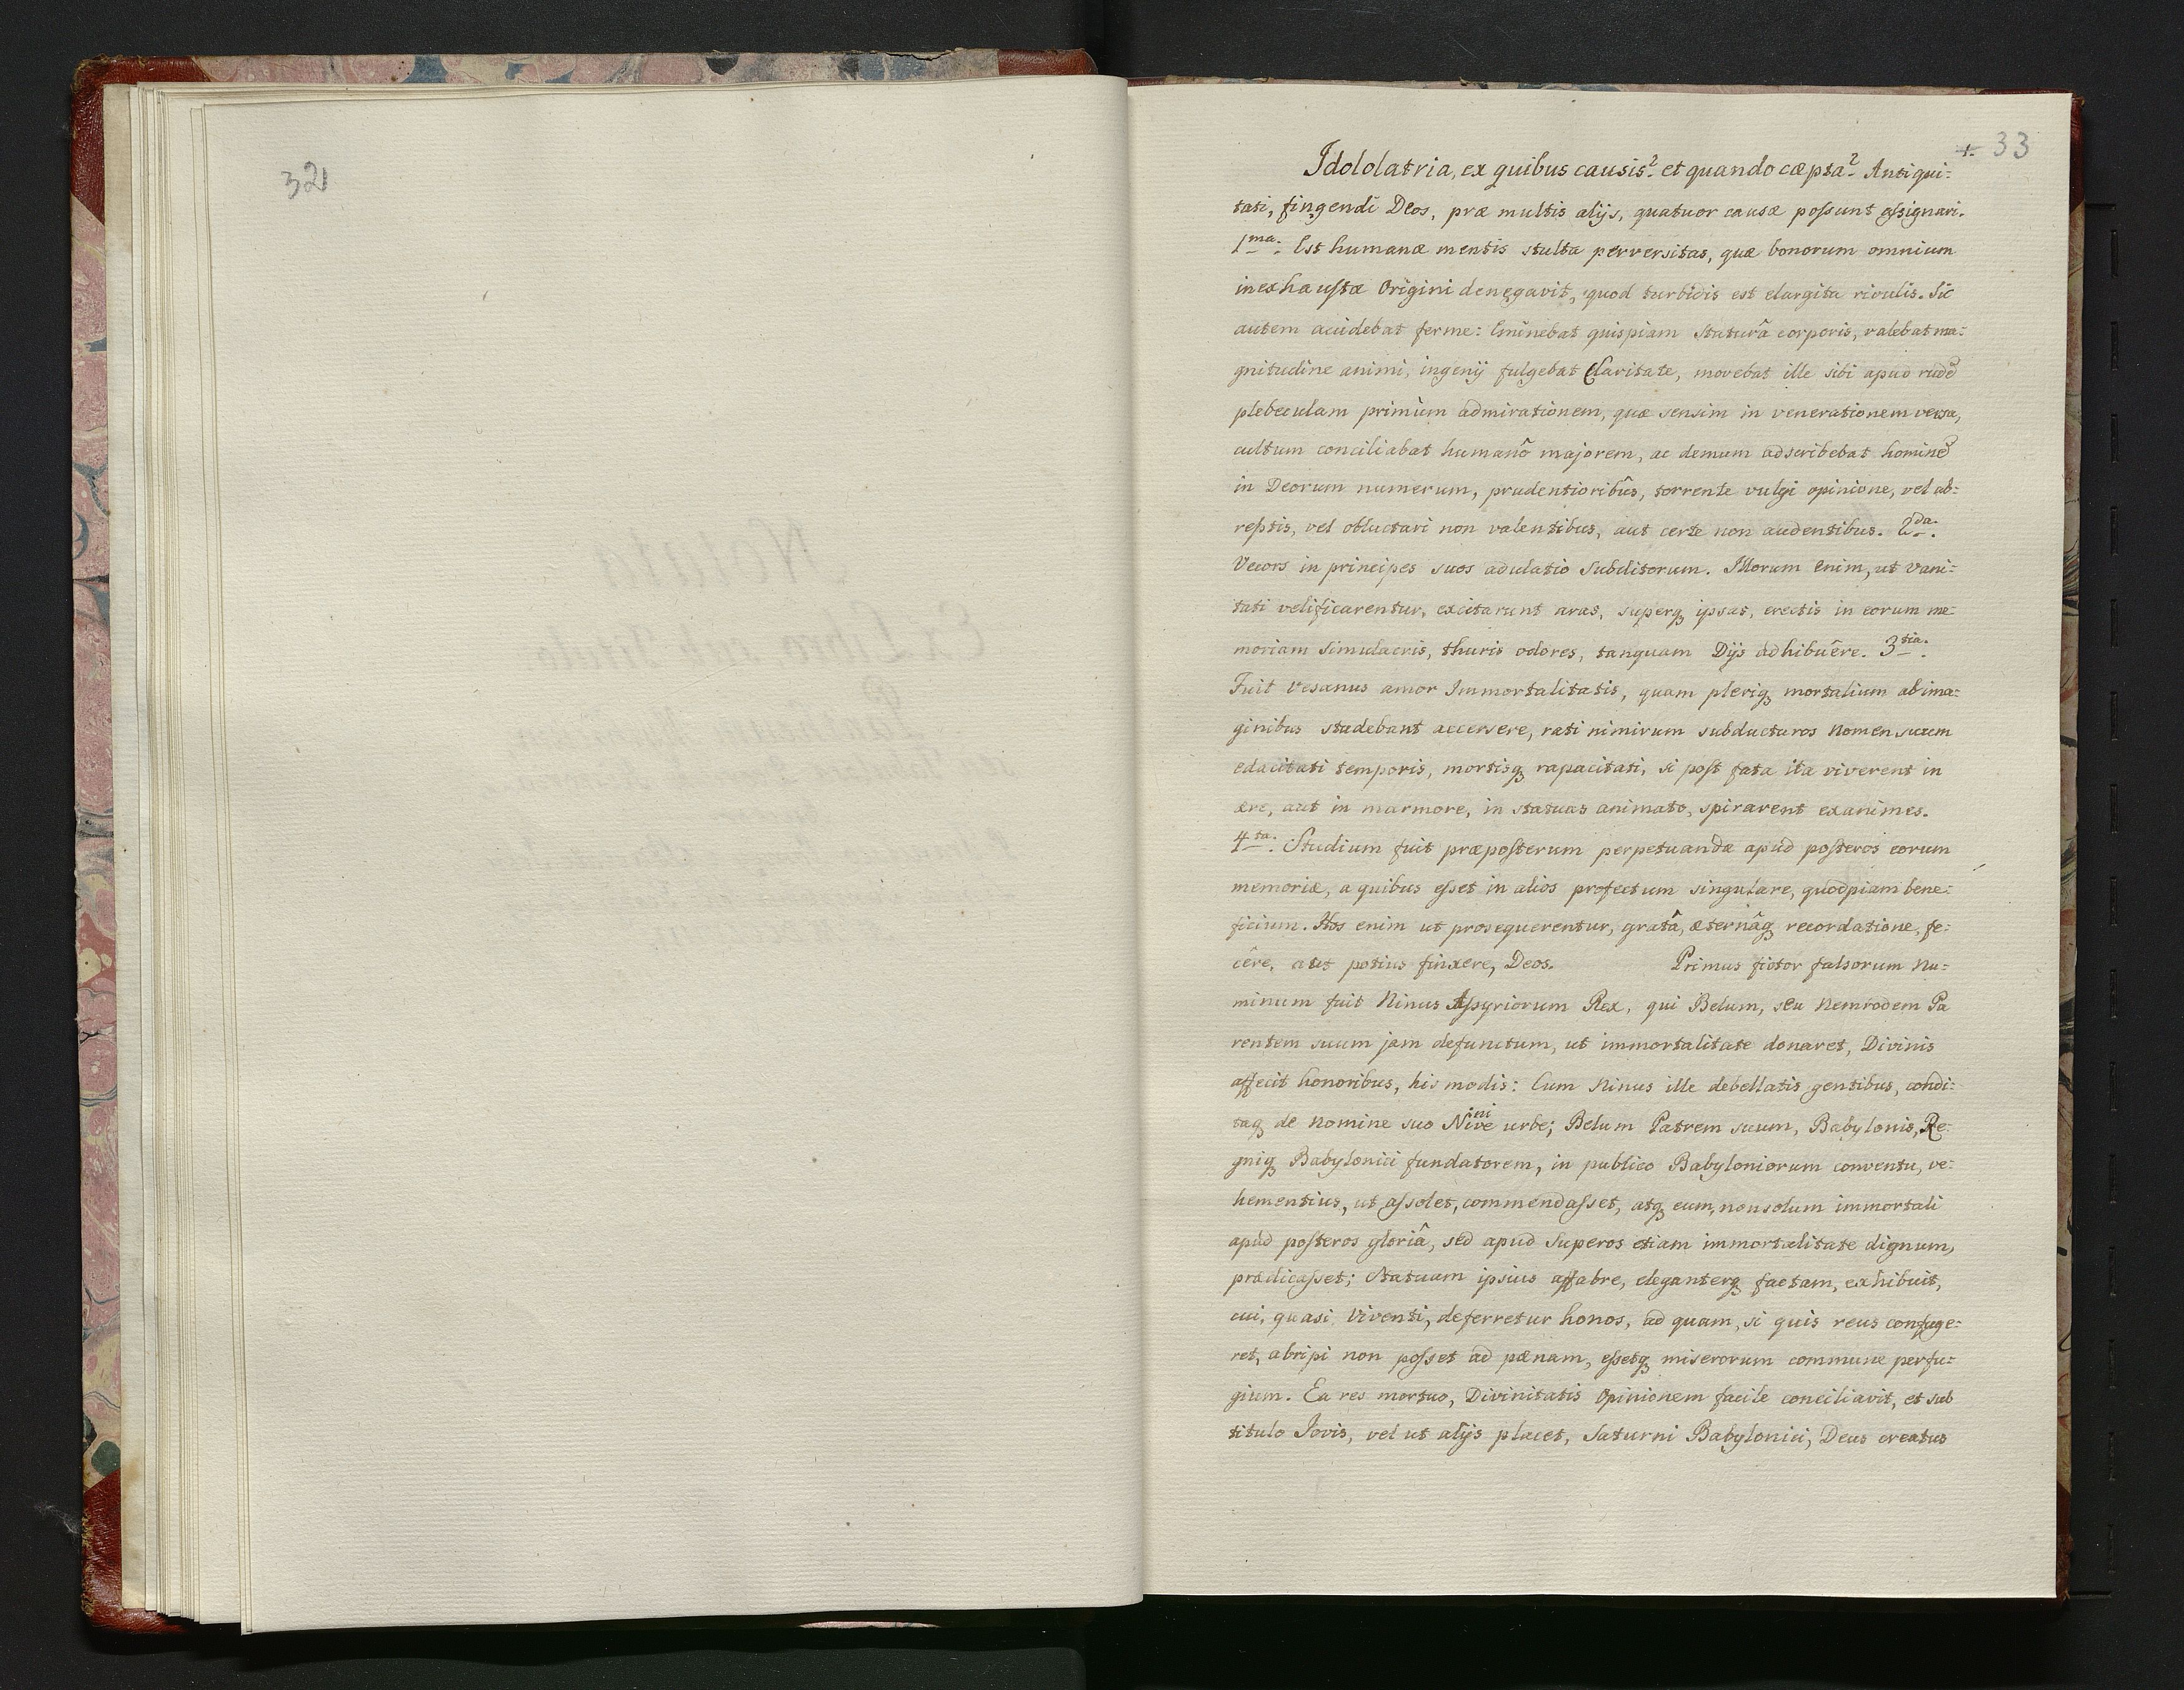 32
1. 33
Idololatria, ex quibus causis? et quando cæpta? Antiqui:
tati, fingendi Deos, præ multis alijs, quatuor causæ possunt assignari.
1ma. Est humanæ mentis stulta perversitas, quæ bonorum omnium
inexhaustæ Origini denegavit, quod turbidis est elargita rivulis. Sic
autem accidebat ferme: Eminebat quispiam staturâ corporis, valebat ma:
gnitudine animi, ingenij fulgebat Claritate, movebat ille sibi apud rude
plebeculam primùm admirationem, quæ sensim in venerationem versa,
cultum conciliabat humanô majorem, ac demum adscribebat homine
in Deorum numerum, prudentioribûs, torrente vulgi opinione, vel ab:
reptis, vel obluctari non valentibus, aut certe non audentibus. 2da.
Vecors in principes suos adulatio Subditorum. Illorum enim, ut vani:
tati velificarentur, excitarunt aras, superq, ipsas, erectis in eorum me:
moriam Simulacris, thuris odores, tanquam Dijs adhibuêre. 3tia.
Fuit vesanus amor Immortalitatis, quam pleriq, mortalium ab ima:
ginibus studebant accersere, rati nimirum subducturos Nomen suum
edacitati temporis, mortisq, rapacitati, si post fata ita viverent in
ære, aut in marmore, in statuas animato, spirarent exanimes.
4ta. Studium fuit præposterum perpetuandæ apud posteros eorum
memoriæ, a quibus esset in alios profectum singulare, quodpiam bene:
ficium. Hos enim ut prosequerentur, gratâ, æternâq, recordatione, fe:
cêre, aut potius finxere, Deos. Primus fictor falsorum Nu:
minum fuit Ninus Assyriorum Rex, qui Belum, seu Nemrodem Pa
rentem suum jam defunctum, ut immortalitate donaret, Divinis
affecit honoribus, his modis: Cum Ninus ille debellatis gentibus, condi:
taq, de Nomine suo Ninive urbe; Belum Patrem suum, Babylonis, Re:
gniq, Babylonici fundatorem, in publico Babyloniorum conventu, ve:
hementius, ut assolet, commendasset, atq, eum, non solum immortali
apud posteros gloriâ, sed apud Superos etiam immortalitate dignum,
prædicasset; Statuam ipsius affabre, eleganterq, factam, exhibuit,
cui, quasi Viventi, deferretur honos, ad quam, si quis reus confuge:
ret, abripi non posset ad pænam, essetq, miserorum commune perfu:
gium. Ea res mortuo, Divinitatis Opinionem facile conciliavit, et sub
titulo Jovis, vel ut alijs placet, Saturni Babylonici, Deus creatus